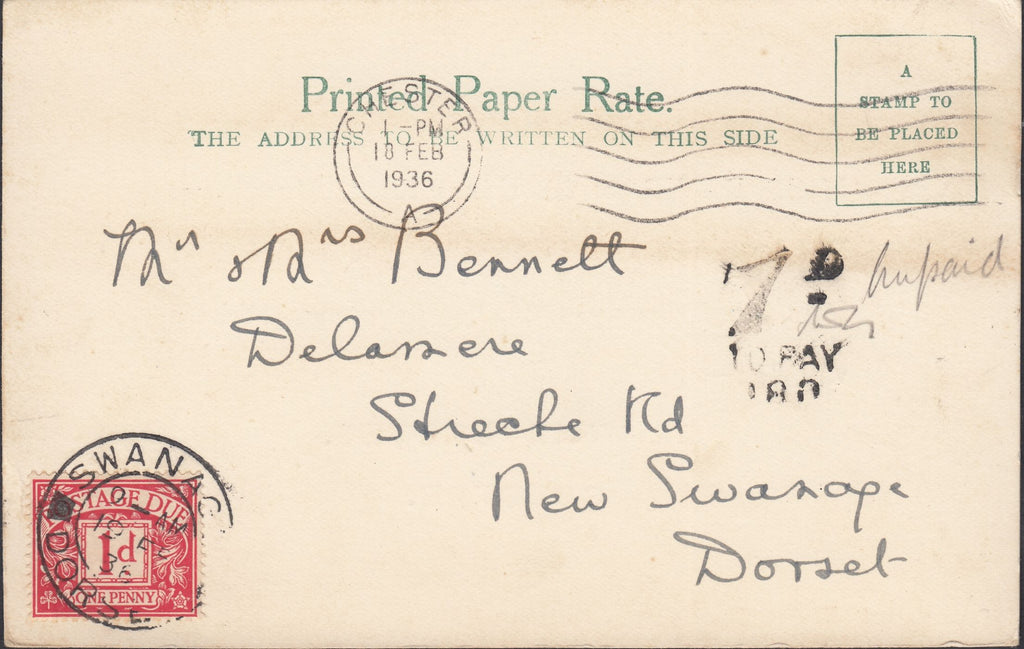 Printed Paper Rate.
THE ADDRESS TO BE WRITTEN ON THIS SIDE
A
STAMP TO
BE PLACED
HERE
CHESTER
1-PM
18 FEB
1936
A
Mr & Mrs Bennett
Delamere
Streche Rd
New Swanage
Dorset
1D
TO PAY
180
Unpaid
SWANAGE
DORSET
19 FE
36
POSTAGE DUE
1d
ONE PENNY